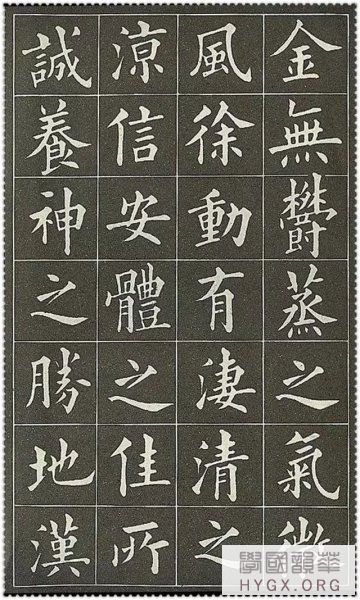 金無鬱蒸之氣微
風徐動有淒清之
涼信安體之佳所
誠養神之勝地漢
華韻國學
HYGX.ORG